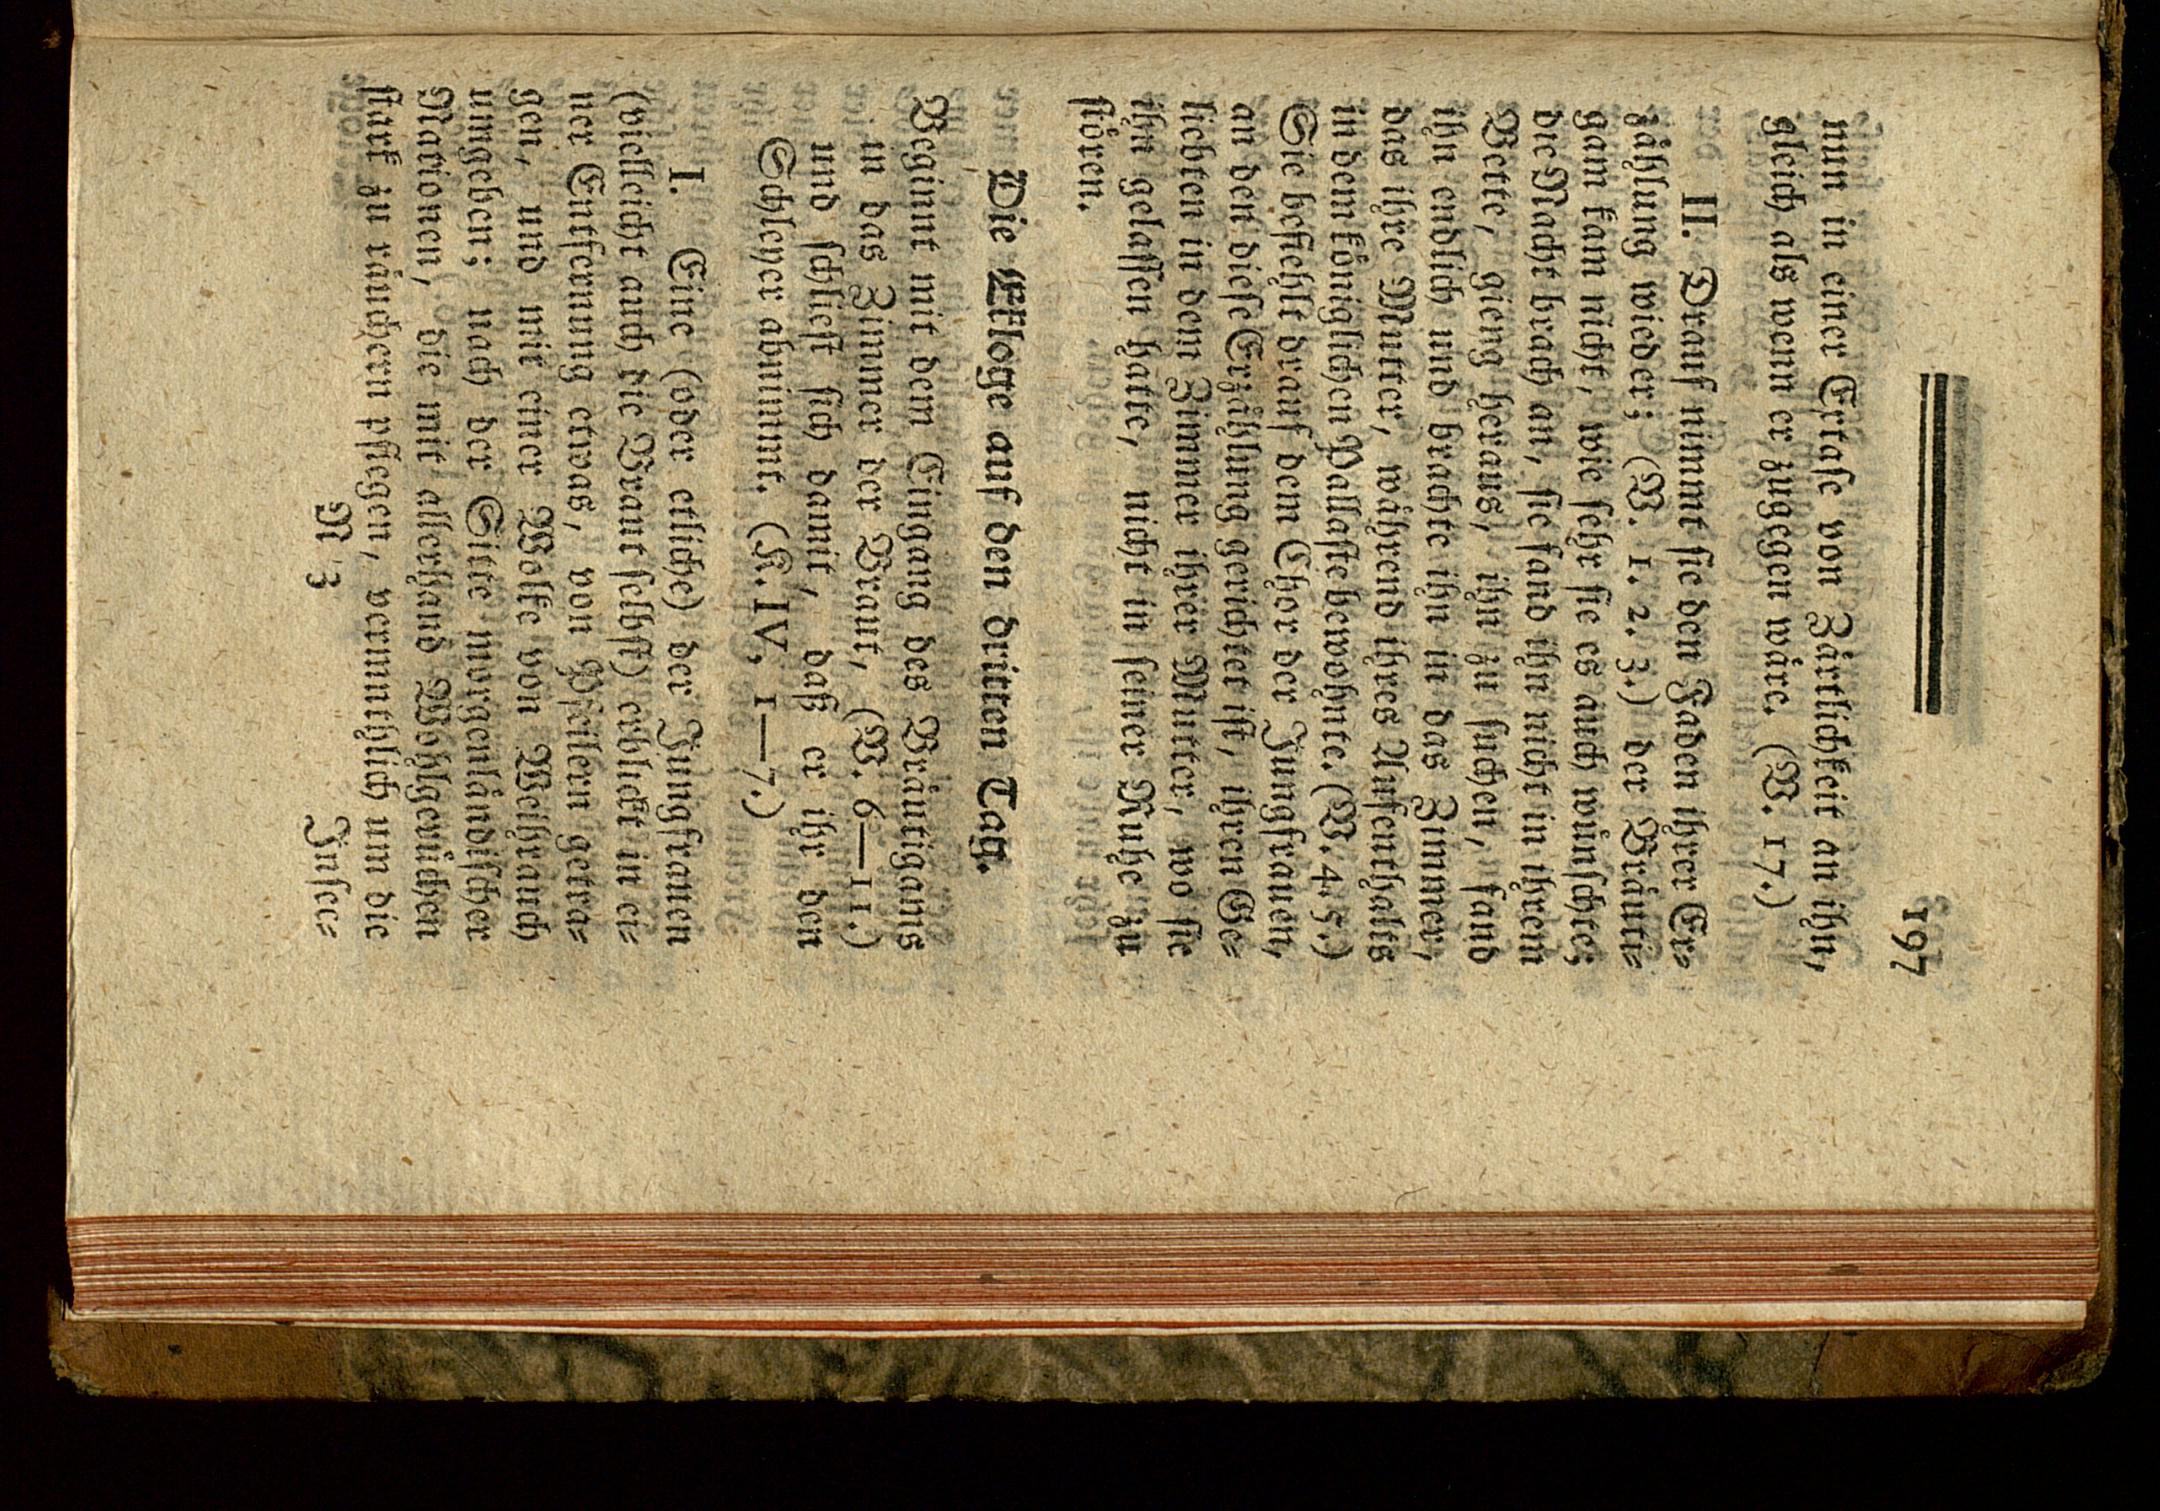 197
nun in einer Extase von Zärtlichkeit an ihn,
gleich als wenn er zugegen wäre. (V. 17.)
II. Drauf nimmt sie den Faden ihrer Er-
zählung wieder; (V. 1. 2. 3.) der Bräuti-
gam kam nicht, wie sehr sie es auch wünschte;
die Nacht brach an, sie fand ihn nicht in ihrem
Bette, gieng heraus, ihn zu suchen, fand
ihn endlich und brachte ihn in das Zimmer,
das ihre Mutter, während ihres Aufenthalts
in dem königlichen Pallaste bewohnte. (V. 4. 5.)
Sie befiehlt drauf dem Chor der Jungfrauen,
an den diese Erzählung gerichtet ist, ihren Ge-
liebten in dem Zimmer ihrer Mutter, wo sie
ihn gelassen hatte, nicht in seiner Ruhe zu
stören.
Die Ekloge auf den dritten Tag.
Beginnt mit dem Eingang des Bräutigams
in das Zimmer der Braut, (V. 6—11.)
und schließt sich damit, daß er ihr den
Schleyer abnimmt. (K. IV, 1—7.)
I. Eine (oder etliche) der Jungfrauen
(vielleicht auch die Braut selbst) erblickt in ei-
ner Entfernung etwas, von Pfeilern getra-
gen, und mit einer Wolke von Weihrauch
umgeben; nach der Sitte morgenländischer
Nationen, die mit allerhand Wohlgerüchen
stark zu räuchern pflegen, vermuthlich um die
N 3
Insec-